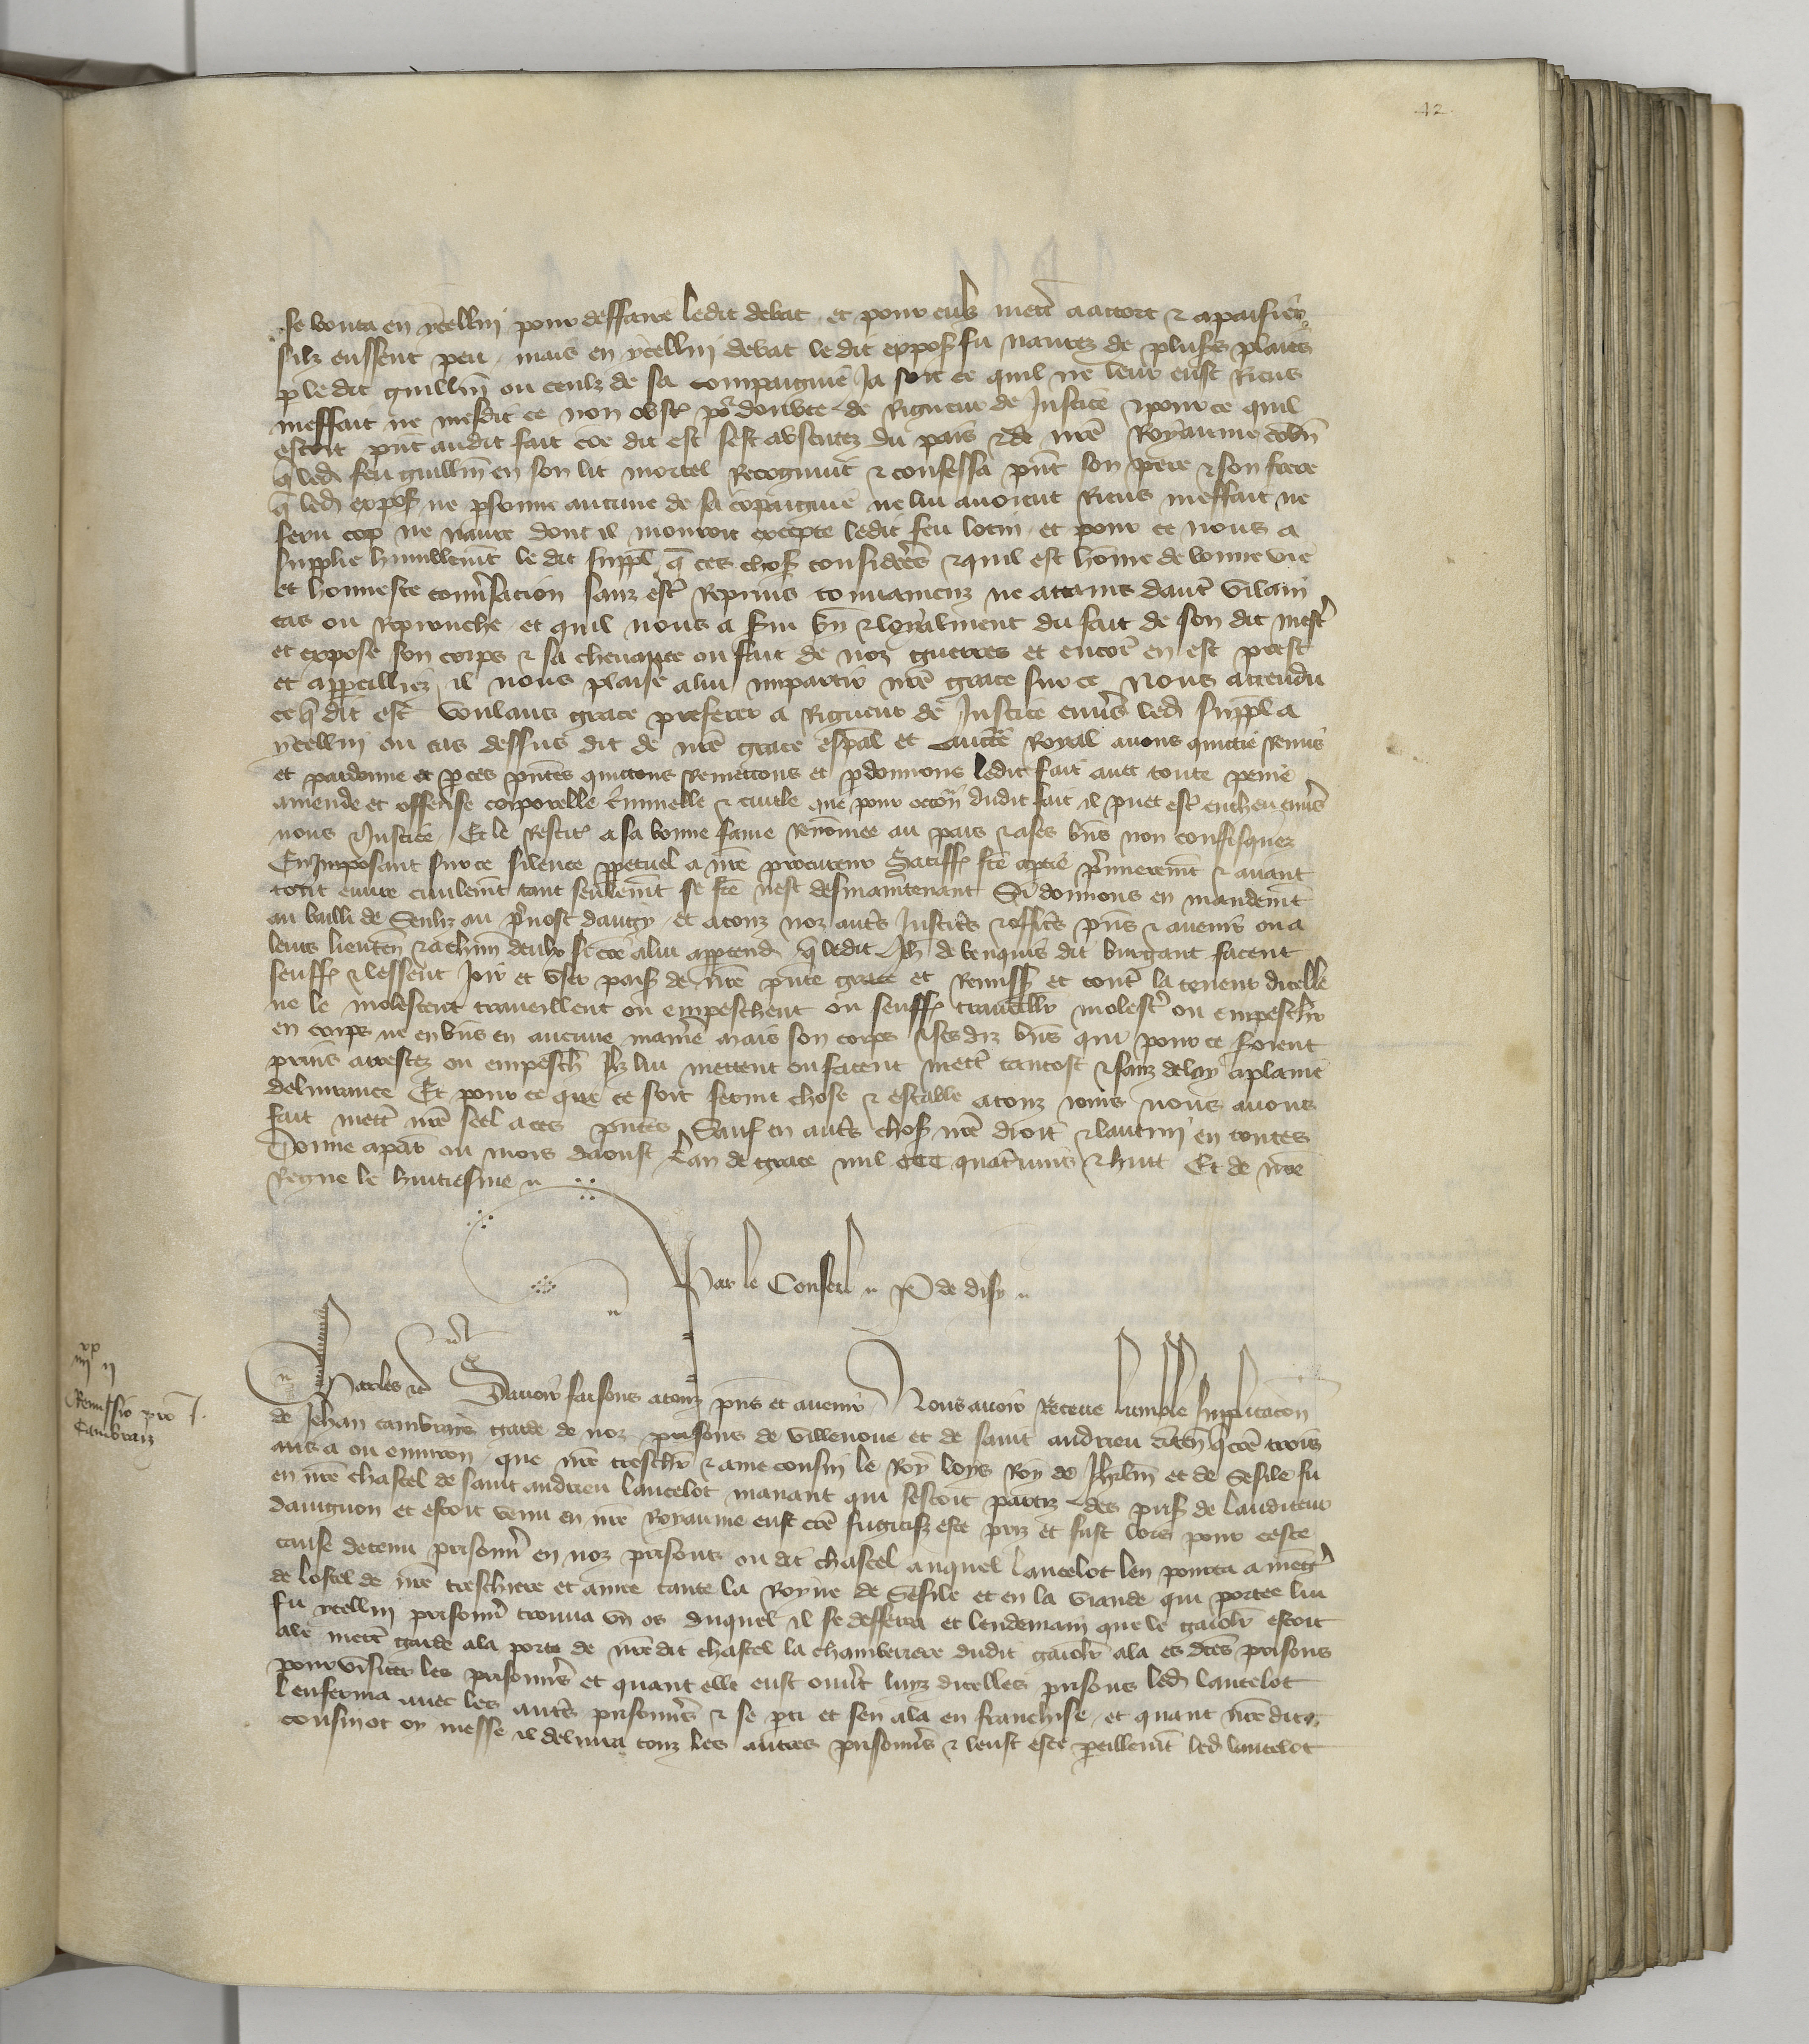 42
se bouta en ycellui pour deffaire ledit debat et pour eulz mettr a acort & apaisier
silz eussent peu. mais en ycellui debat ledit expos fu navrez de plus's plaies
p ledit guillm ou ceulz de sa compaignie Ja soit ce quil ne leur eust Riens
meffait ne mesdit ce non obst por doubte de Rigueur de Justice & pour ce quil
estoit pnt audit fait coe dit est sest absentez du pais & de nre Royaume
q led feu guillm en son lit mortel Recognut & confessa pnt son pere & son frere
q led expos ne psonne aucune de sa copaignie ne lui avoient Riens meffait ne
feru cop ne navre dont il mouroit excepte ledit feu lotin. et pour ce nous a
supplie humblemt le dit suppl q ces chos considerees & quil est home de bonne vie
et honneste conversacion sanz estr Reprins convaincuz ne attains dautr vilain
cas ou Reprouche. et quil nous a servi bn & loyalment du fait de son dit mestr
et expose son corps & sa chevance ou fait de noz guerres et encor en est prest
et appeilliez il nous plaise a lui impartir nre grace sur ce Nous attendu
ce q dit est voulans grace preferer a Rigueur de Justice envers led suppl a
ycellui ou cas dessus dit de nre grace espal et aucte Royal avons quictie Remis
et pardonne et p ces pntes quictons Remettons et pdonnons ledit fait avec toute peine
amende et offense corporelle criminelle & civile que pour occon dudit fait il puet estr encheu envers
nous & Justice. Et le Restit a sa bonne fame Renomee au pais & a ses bns non confisquez
En Imposant sur ce silence ppetuel a nre procureur Satiff fce aptie primieremt & avant
tout euvre civilemt tant seulemt se fce nest desmaintenant Si donnons en mandemt
au bailli de Senliz au prevost dangy. et a touz noz autrs Justiciers & officrs pns & avenir ou a
leurs lieuten & a chun deulx si coe a lui append q ledit Jh de benquis dit burgant facent
seuff & lessent Joir et user paisb de nre pnte grace et Remiss et contr la teneur dicelle
ne le molestent traveillent ou empeschent ou seuff traveillr molestr ou empeschr
en corps ne en bns en aucune maniere mais son corps & ses diz bns qui pour ce seroient
prins arrestez ou empesch Ilz lui mettent ou facent mettr tantost & sanz delay a plaine
delivrance Et pour ce que ce soit ferme chose & estable a touz jours nous avons
fait mettr nre seel a ces pntes Sauf en autrs chos nre droit & lautrui en toutes
Donne a par ou mois daoust Lan de grace mil CCC quatrvins & huit Et de nre
Regne le huitiesme
Par le Conseil P de disy
iiiixx ii
Remissio pro J.
Cambrarz
Charles etc Savoir faisons a touz pns et avenir Nous avoir Receue humble supplicacon
de Jehan cambrare garde de noz prisons de villenove et de saint andrieu conten q coe trois
ans a ou environ. que nre treschr & ame cousin le Roy loys Roy de Jhrlm et de Sesile fu
en nre chastel de saint andrieu lancelot manant qui sestoit partiz des pris de lauditeur
davignon et estoit venu en nre Royaume eust coe fugitif este priz et fust lors pour ceste
cause detenu prisonnr en noz prisons ou dit chastel auquel lancelot len pourta a mengr
de lostel de nre treschiere et amee tante la Royne de Sesile et en la viande qui portee lui
fu ycellui prisonnr trouva un os duquel il se defferra et lendemain que le gaiolr estoit
ale mettr garde a la porte de nredit chastel la chamberiere dudit gaiolr ala es dces prisons
pour visiter les prisonnrs et quant elle eust ouvert luyz dicelles prisons led lancelot
lenferma avec les autrs prisonnrs & se pti et sen ala en franchise. et quant nredit
cousin ot oy messe il delivra touz les autres prisonnrs & leust este peillemt led lancelot